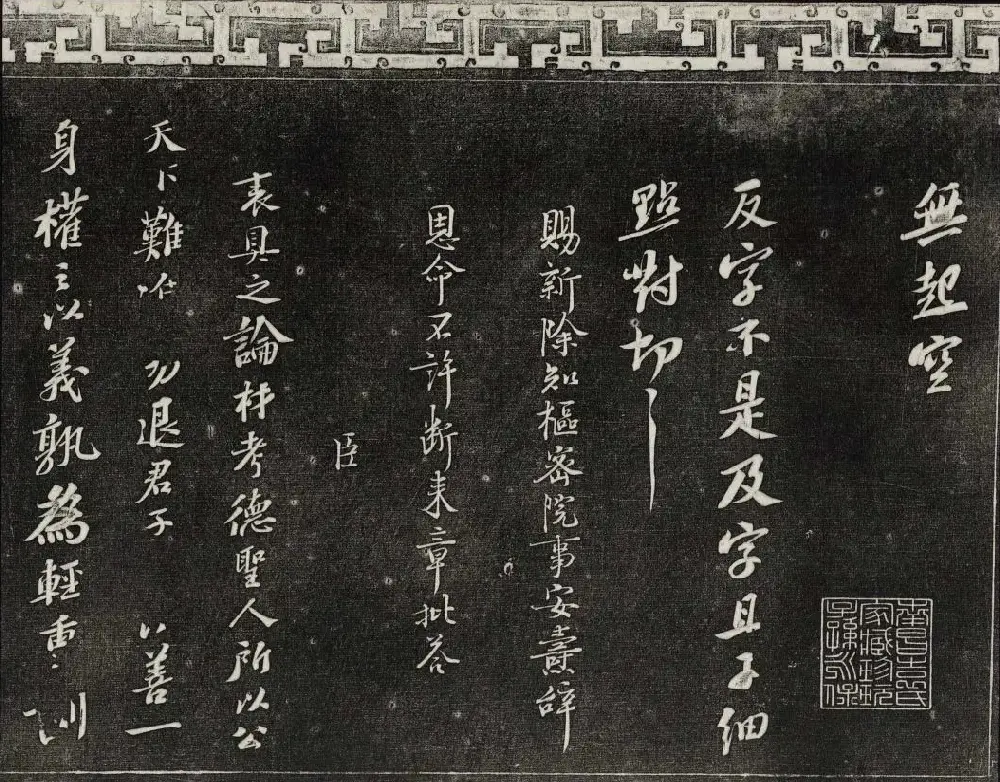 無起空
反字不是及字且子細
點對切〻
賜新除知樞密院事安燾辭
恩命不許斷来章批答
臣
具之論材考德聖人所以公
天下難 勿退君子 善一
身權之以義孰為輕重 訓
家藏珍玩
子孫永保